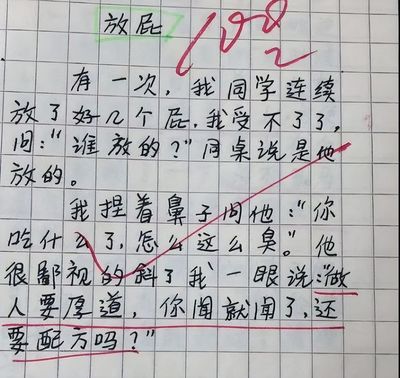 放屁
100
2
有一次，我同学连续
放了好几个屁，我受不了了，
问：“谁放的？”同桌说是他
放的。
我捏着鼻子问他：“你
吃什么了，怎么这么臭。”他
很鄙视的斜了我一眼说：“做
人要厚道，你闻就闻了，还
要配方吗？”